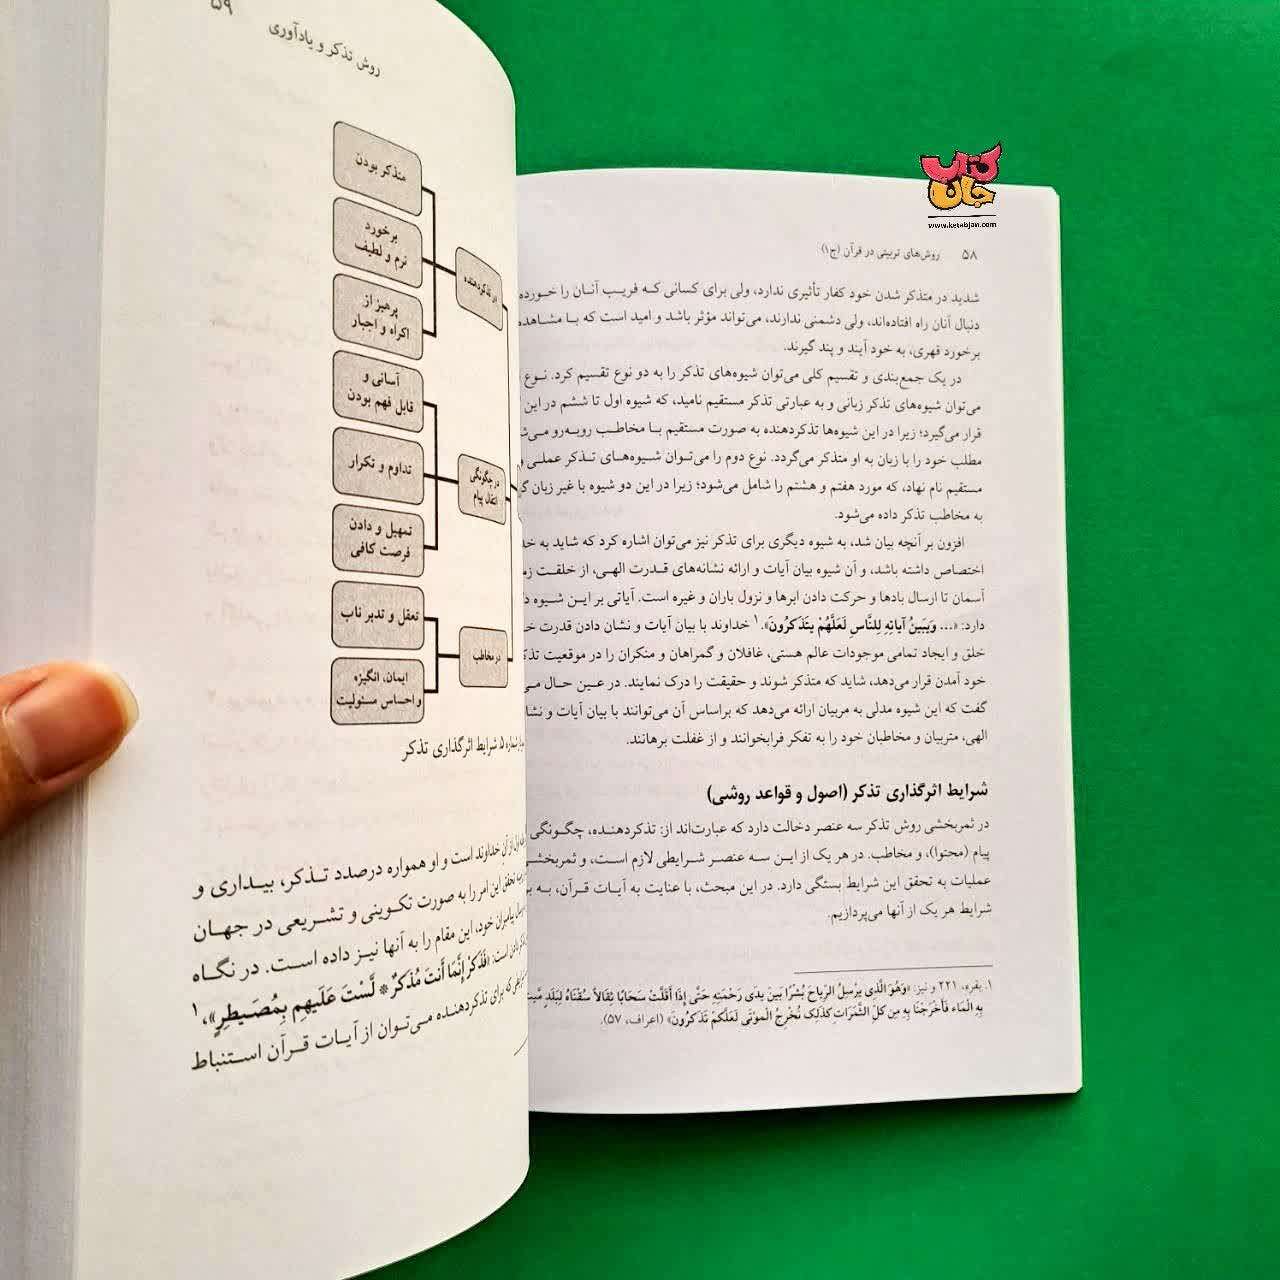 کتاب جان
www.ketabjan.com
۵۸ روش‌های تربیتی در قرآن (ج۱)
شدید در متذکر شدن خود کفار تأثیری ندارد، ولی برای کسانی که فریب آنان را خورده
دنبال آنان راه افتاده‌اند، ولی دشمنی ندارند، می‌تواند مؤثر باشد و امید است که با مشاهده
برخورد قهری، به خود آیند و پند گیرند.
در یک جمع‌بندی و تقسیم کلی می‌توان شیوه‌های تذکر را به دو نوع تقسیم کرد. نوع
می‌توان شیوه‌های تذکر زبانی و به عبارتی تذکر مستقیم نامید، که شیوه اول تا ششم در این
قرار می‌گیرد؛ زیرا در این شیوه‌ها تذکردهنده به صورت مستقیم با مخاطب روبه‌رو
مطلب خود را با زبان به او متذکر می‌گردد. نوع دوم را می‌توان شیوه‌های تذکر عملی و
مستقیم نام نهاد، که مورد هفتم و هشتم را شامل می‌شود؛ زیرا در این دو شیوه با غیر زبان
به مخاطب تذکر داده می‌شود.
افزون بر آنچه بیان شد، به شیوه دیگری برای تذکر نیز می‌توان اشاره کرد که شاید به
اختصاص داشته باشد، و آن شیوه بیان آیات و ارائه نشانه‌های قدرت الهی، از خلقت
آسمان تا ارسال بادها و حرکت دادن ابرها و نزول باران و غیره است. آیاتی بر این شیوه
دارد: «... وَیبَینُ آیاتِهِ لِلنَّاسِ لَعَلَّهُمْ یتَذَکرُونَ».۱ خداوند با بیان آیات و نشان دادن قدرت
خلق و ایجاد تمامی موجودات عالم هستی، غافلان و گمراهان و منکران را در موقعیت
خود آمدن قرار می‌دهد، شاید که متذکر شوند و حقیقت را درک نمایند. در عین حال
گفت که این شیوه مدلی به مربیان ارائه می‌دهد که براساس آن می‌توانند با بیان آیات و
الهی، متربیان و مخاطبان خود را به تفکر فرابخوانند و از غفلت برهانند.
شرایط اثرگذاری تذکر (اصول و قواعد روشی)
در ثمربخشی روش تذکر سه عنصر دخالت دارد که عبارت‌اند از: تذکردهنده، چگونگی
پیام (محتوا)، و مخاطب. در هر یک از این سه عنصر شرایطی لازم است، و
عملیات به تحقق این شرایط بستگی دارد. در این مبحث، با عنایت به آیات قرآن، به
شرایط هر یک از آنها می‌پردازیم.
۱. بقره، ۲۲۱ و نیز: «وَهُوَ الَّذِی یرْسِلُ الرِّیاحَ بُشْرًا بَینَ یدَی رَحْمَتِهِ حَتَّی إِذَا أَقَلَّتْ سَحَابًا ثِقَالاً سُقْنَاهُ لِبَلَدٍ
بِهِ الْمَاء فَأَخْرَجْنَا بِهِ مِن کلِّ الثَّمَرَاتِ کذَلِک نُخْرِجُ الْمَوْتَی لَعَلَّکمْ تَذَکرُونَ» (اعراف، ۵۷).
روش تذکر و یادآوری ۵۹
در تذکردهنده
متذکر بودن
برخورد
نرم و لطیف
پرهیز از
اکراه و اجبار
در چگونگی
انتقال پیام
آسانی و
قابل فهم بودن
تداوم و تکرار
تمهیل و دادن
فرصت کافی
در مخاطب
تعقل و تدبر ناب
ایمان، انگیزه
و احساس مسئولیت
شماره ۵. شرایط اثرگذاری تذکر
از آن خداوند است و او همواره درصدد تذکر، بیداری و
تحقق این امر را به صورت تکوینی و تشریعی در جهان
پیامبران خود، این مقام را به آنها نیز داده است. در نگاه
است: «فَذَکرْ إِنَّمَا أَنتَ مُذَکرٌ * لَّسْتَ عَلَیهِم بِمُصَیطِرٍ»،۱
که برای تذکردهنده می‌توان از آیات قرآن استنباط